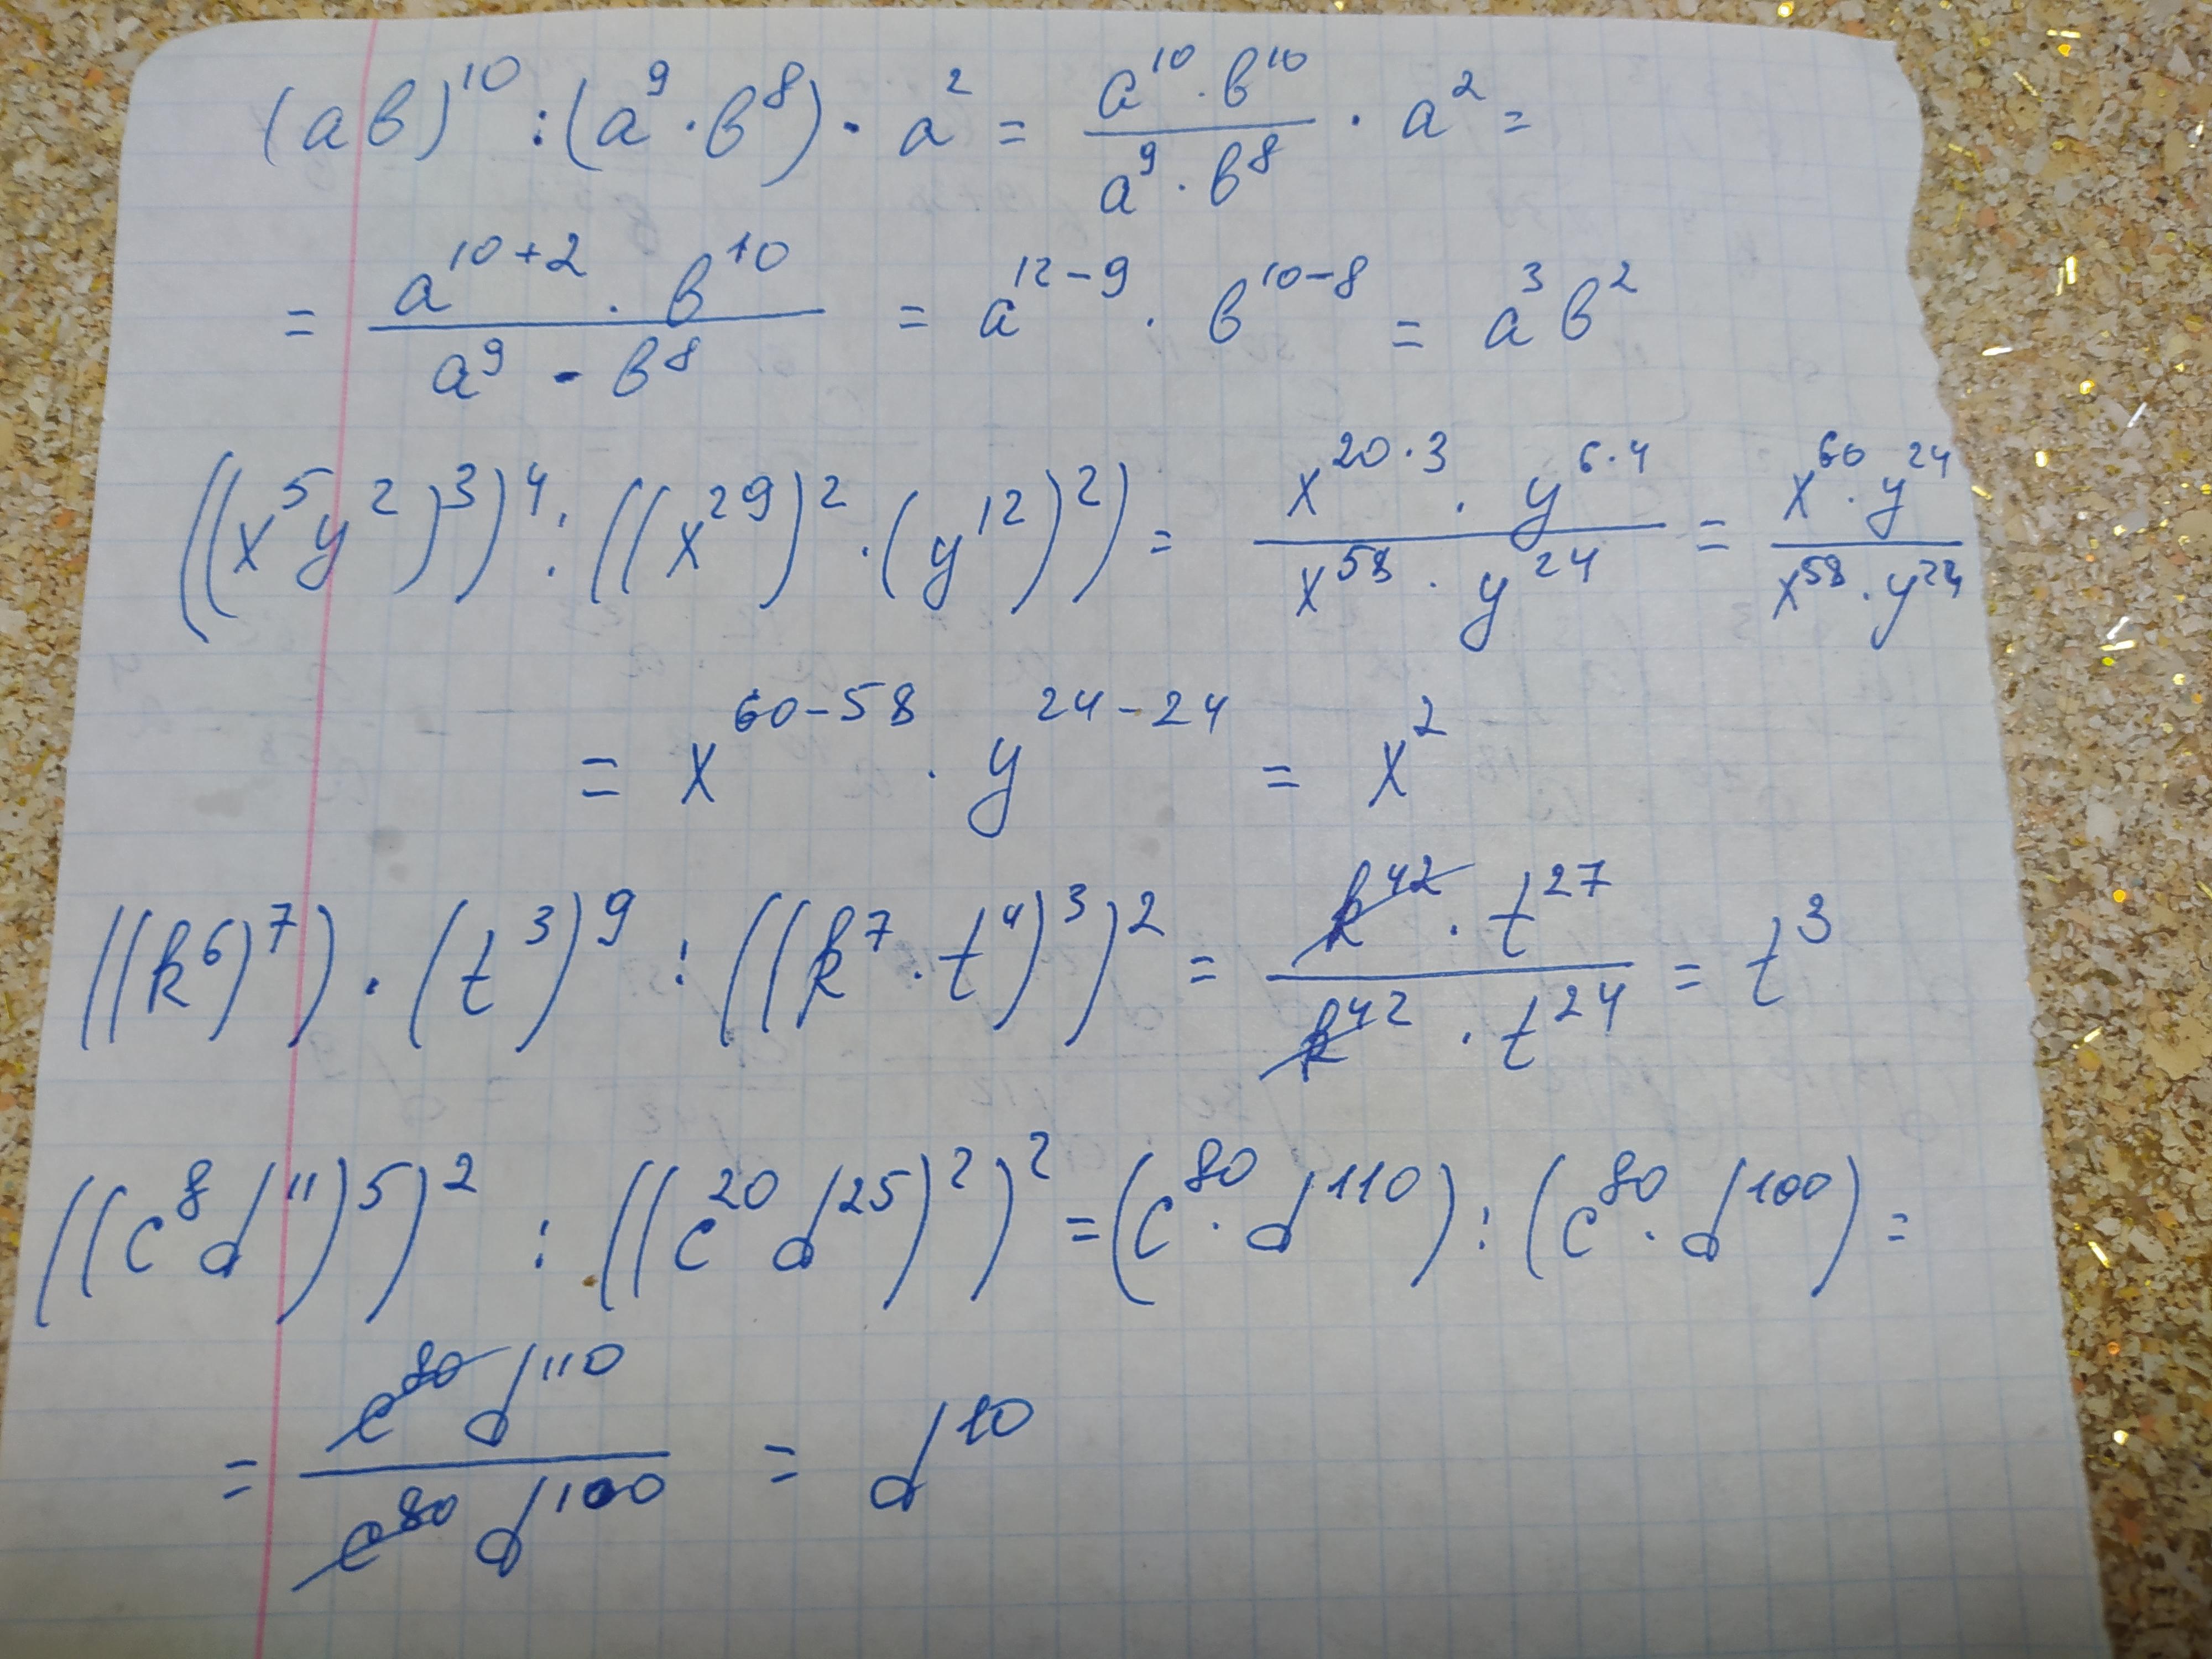 (ав)¹⁰ : (а⁹ · в⁸) · а² = (а¹⁰ · в¹⁰)/(а⁹ · в⁸) · а² =
= (а¹⁰⁺² · в¹⁰)/(а⁹ · в⁸) = а¹²⁻⁹ · в¹⁰⁻⁸ = а³в²
((x⁵y²)³)⁴ : ((x²⁹)² · (y¹²)²) = (x²⁰·³ · y⁶·⁴)/(x⁵⁸ · y²⁴) = (x⁶⁰ · y²⁴)/(x⁵⁸ · y²⁴)
= x⁶⁰⁻⁵⁸ · y²⁴⁻²⁴ = x²
((k⁶)⁷) · (t³)⁹ : ((k⁷ · t⁴)³)² = (k⁴² · t²⁷)/(k⁴² · t²⁴) = t³
((c⁸d¹¹)⁵)² : ((c²⁰d²⁵)²)² = (c⁸⁰ · d¹¹⁰) : (c⁸⁰ · d¹⁰⁰) =
= (c⁸⁰d¹¹⁰)/(c⁸⁰d¹⁰⁰) = d¹⁰